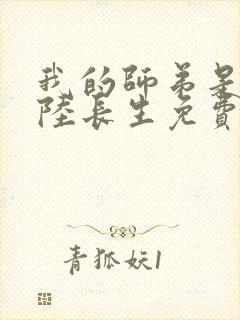 我的師弟是
陸長生免費
青狐妖1